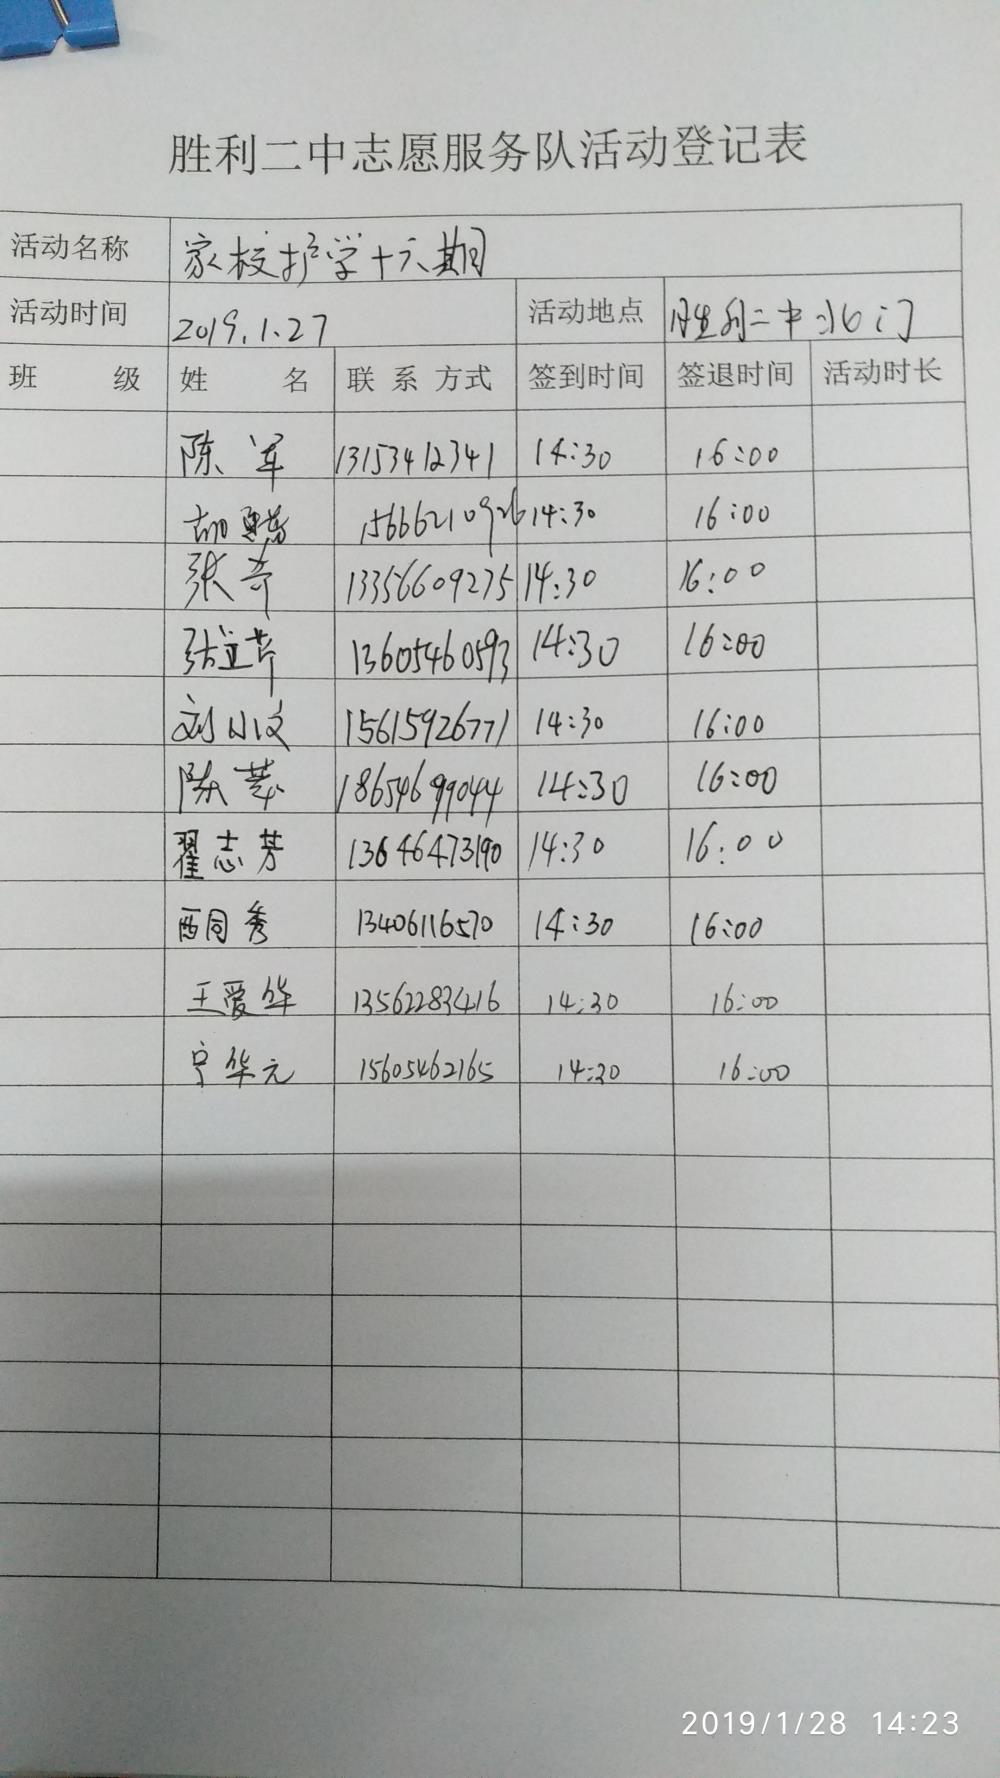 胜利二中志愿服务队活动登记表
活动名称 家校护学十六期
活动时间 2019.1.27 活动地点 胜利二中北门
班 级 姓 名 联 系 方式 签到时间 签退时间 活动时长
陈军 13153412341 14:30 16:00
胡 15666210926 14:30 16:00
张奇 13356609275 14:30 16:00
张立芹 13605460593 14:30 16:00
刘小文 15615926771 14:30 16:00
陈 18654699044 14:30 16:00
翟志芳 13646473190 14:30 16:00
西同秀 13406116570 14:30 16:00
王爱华 13562283416 14:30 16:00
宁华元 15605462165 14:30 16:00
2019/1/28 14:23